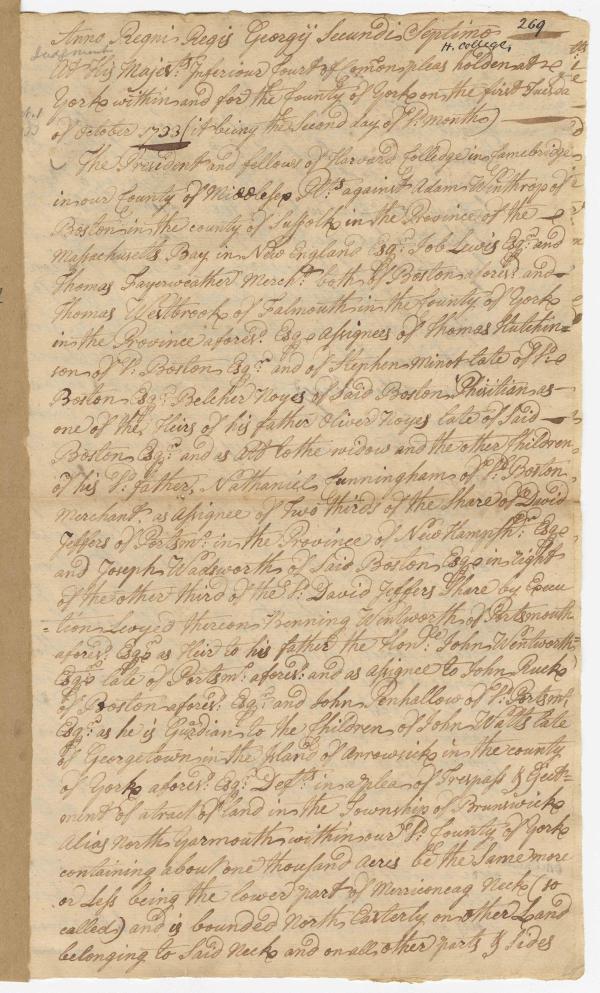 269
Anno Regni Regis Georgÿ Secundi Septimo
H. College,
Judgment
At His Majes.ts Inferiour Court of Comon pleas holden at
York within and for the County of York on the first Tuesda
of October 1733 (it being the Second day of s.d month)
The President and fellows of Harvard Colledge in Cambridge
in our County of Middlesex Pl.ts against Adam Winthrop of
Boston in the county of Suffolk in the Province of the
Massachusetts Bay in New England Esq.r Job Lewis Esq.r and
Thomas Fayerweather Merch.t both of Boston afores.d and
Thomas Westbrook of Falmouth in the County of York
in the Province afores.d Esq.r Assignees of Thomas Hutchin=
son of s.d Boston Esq.r and of Stephen Minot late of s.d
Boston Esq.r Belcher Noyes of Said Boston Phisitian as
one of the Heirs of his father Oliver Noyes late of Said
Boston Esq.r and as to the widow and the other Children
of his s.d father, Nathaniel Cunningham of s.d Boston
Merchant as Assignee of Two thirds of the Share of David
Jeffers of Portsm.o in the Province of New Hampsh.r Esq.r
and Joseph Wadsworth of Said Boston Esq.r in right
of the other third of the s.d David Jeffers Share by Execu
=tion Levyed thereon Benning Wentworth of Portsmouth
afores.d Esq.r as Heir to his father the Hon.ble John Wentworth
Esq.r late of Portsm.o afores.d and as Assignee to John Ruck
of Boston afores.d Esq.r and John Penhallow of s.d Portsm.o
Esq.r as he is Guardian to the Children of John Watts late
of Georgetown in the Island of Arrowsick in the county
of York afores.d Esq.r Def.ts in a plea of Trespass & Eject=
ment of a tract of land in the Township of Brunswick
alias North Yarmouth within our s.d County of York
containing about one thousand Acres be the Same more
or Less being the lower part of Merriconeag Neck (so
called) and is bounded North Easterly on other Land
belonging to Said Neck and on all other parts & Sides